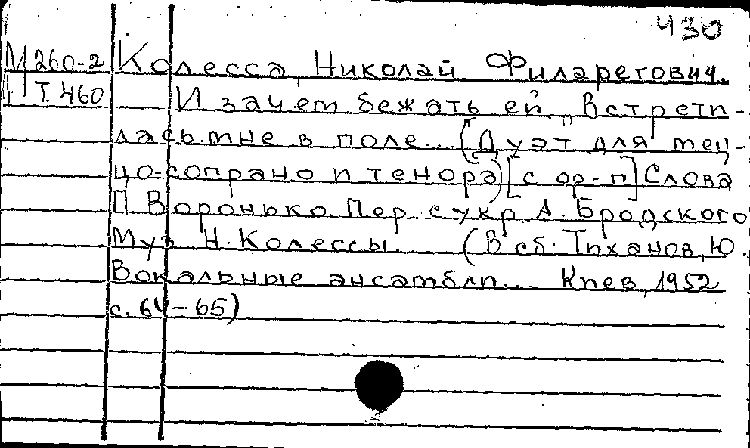 430
М 260-2 Колесса, Николай Филаретович.
Т 460 И зачем бежать ей. "Встрети-
лась мне в поле... (Дуэт для мец-
цо-сопрано и тенора) [с ф-п] Слова
П. Воронько. Пер. с укр. А. Бродского
Муз. Н. Колессы. (В сб: Тиханов, Ю.
Вокальные ансамбли... Киев, 1952
с. 64-65)